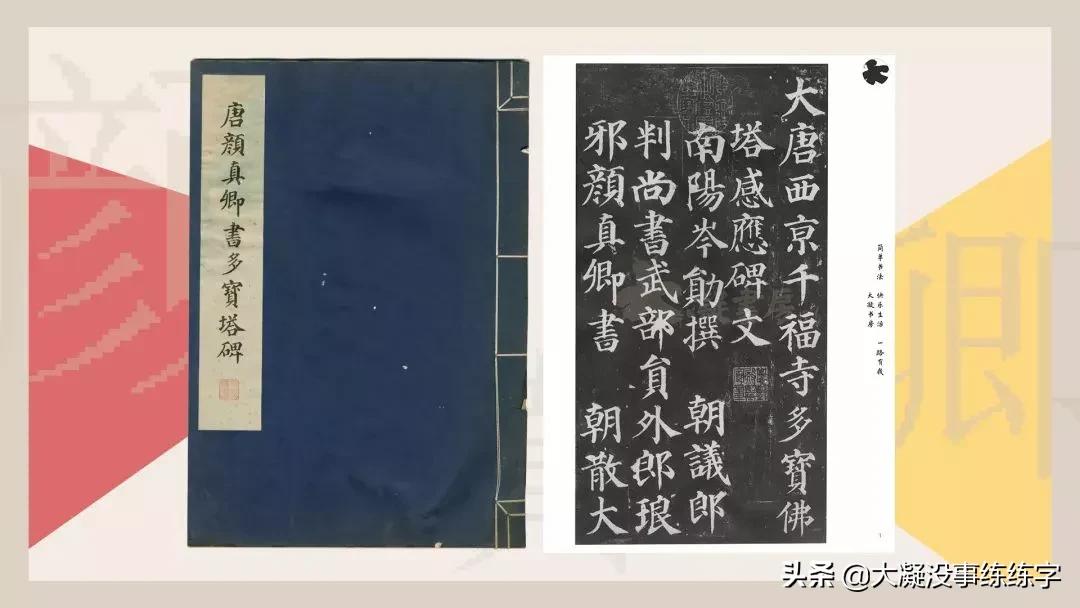 唐顏真卿書多寶塔碑
大唐西京千福寺多寶佛
塔感應碑文
南陽岑勛撰 朝議郎
判尚書武部員外郎琅
邪顏真卿書 朝散大
简单书法 快乐生活 一路有我
大凝书房
1
头条 @大凝没事练练字